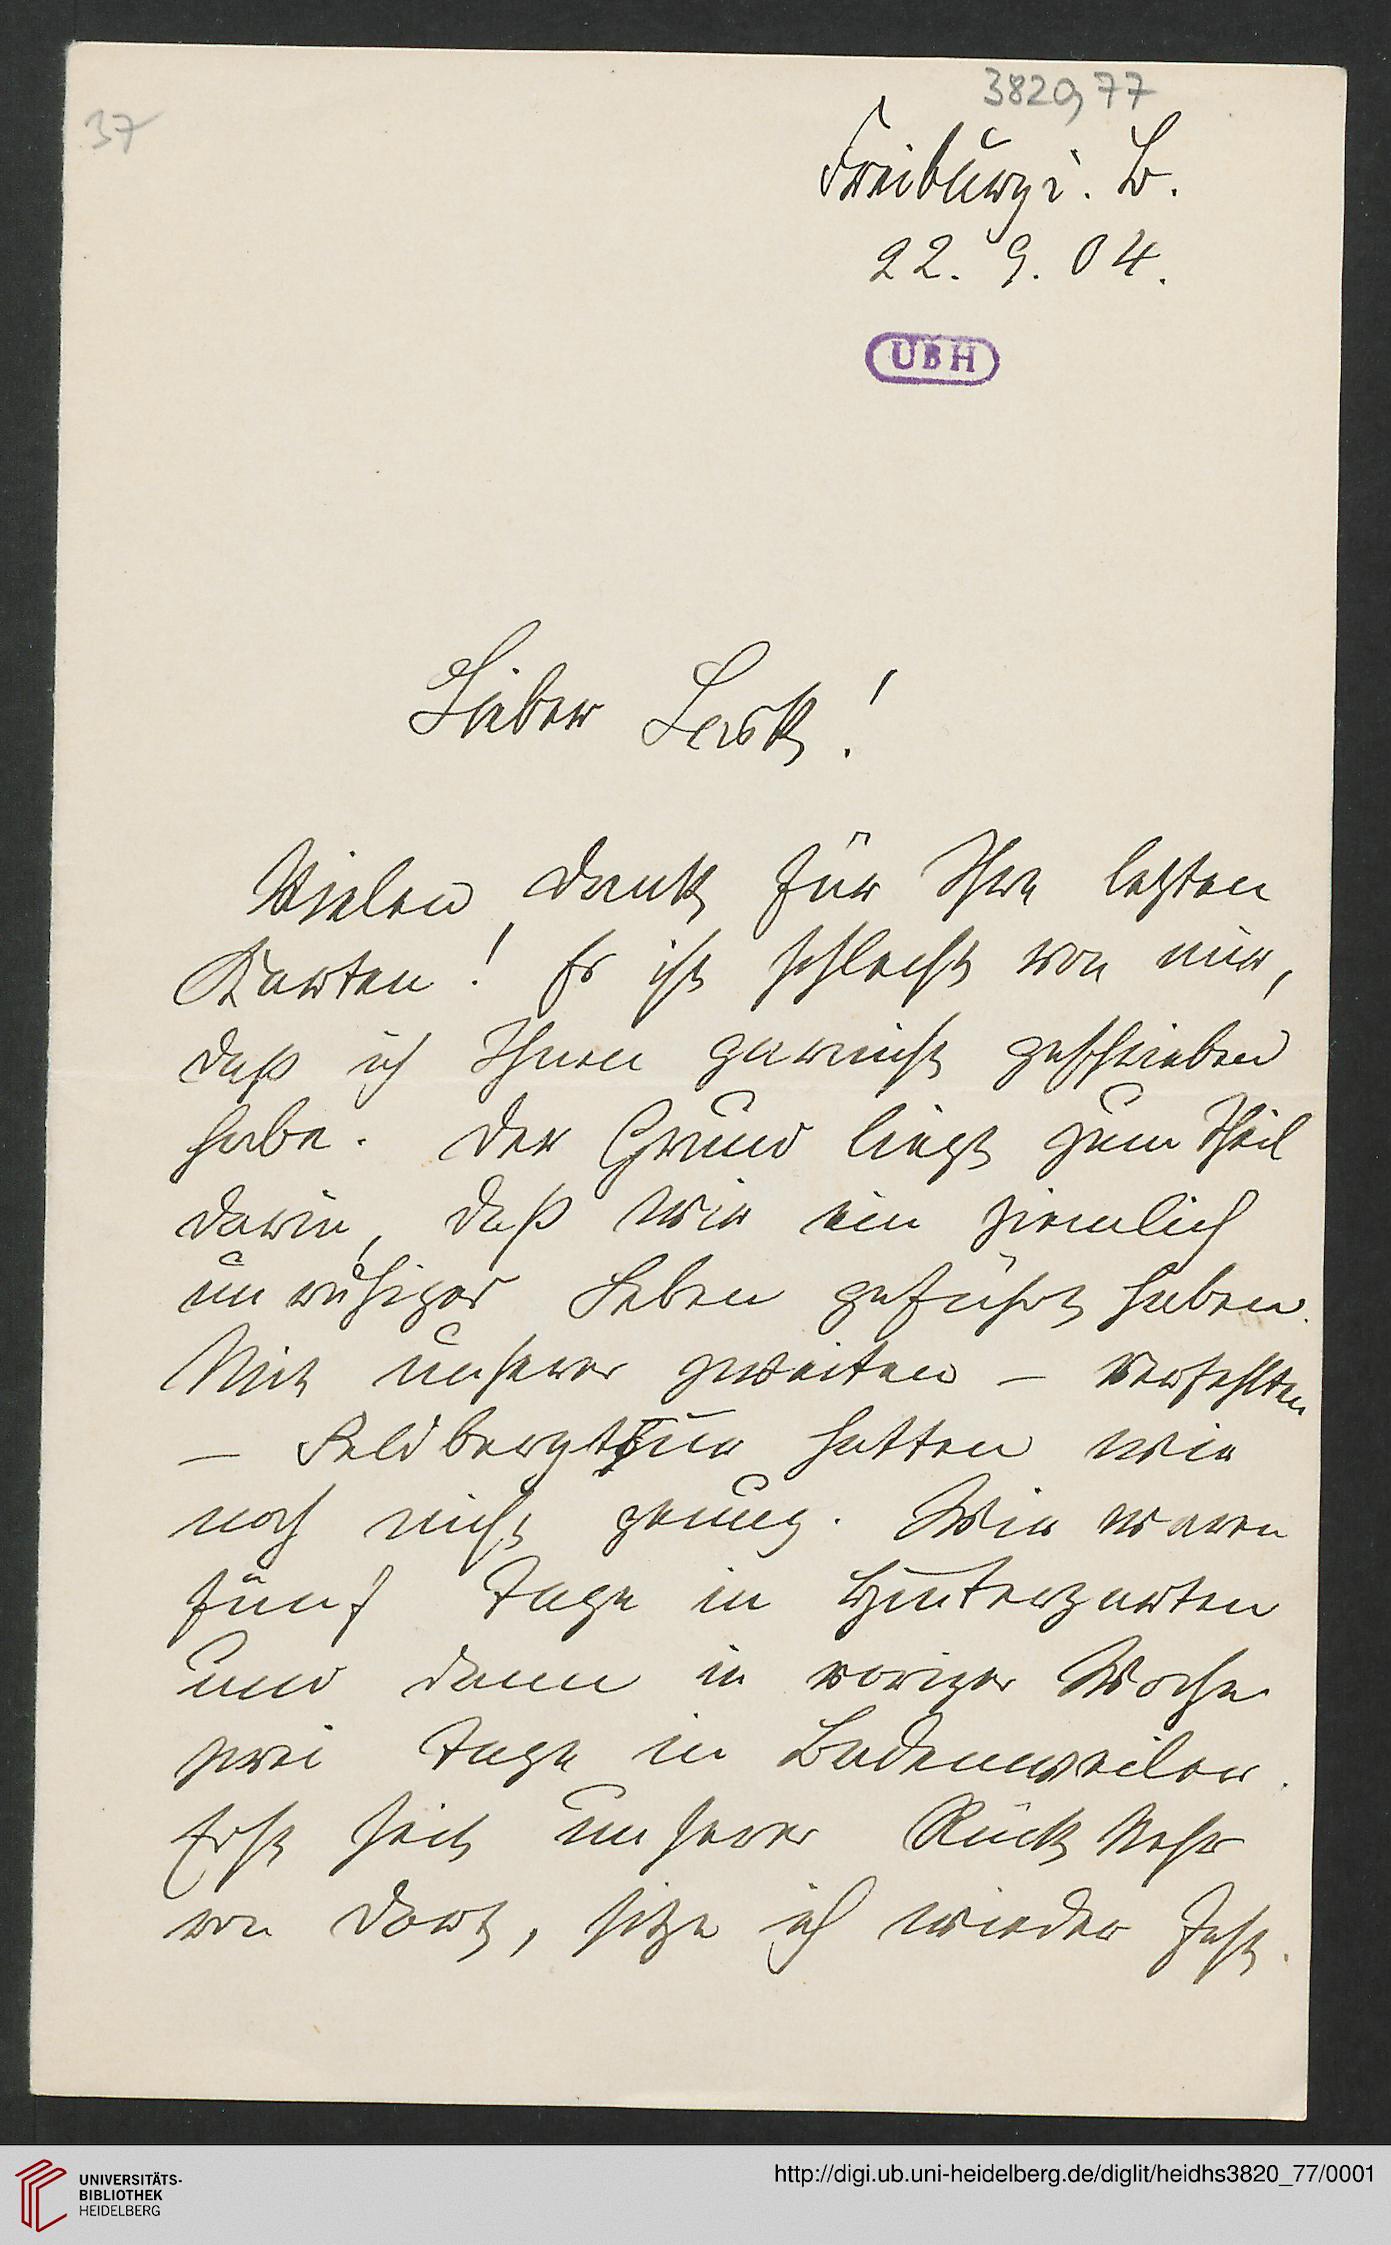 3820,77
37
Freiburg i. B.
22. 9. 04.
UBH
Lieber Lask!
Vielen Dank für Ihre letzten
Karten! Es ist schlecht von mir,
daß ich Ihnen garnicht geschrieben
habe. Der Grund liegt zum Theil
darin, daß wir ein ziemlich
unruhiges Leben geführt haben.
Mit unserer zweiten – verfehlten
– Feldbergtour hatten wir
noch nicht genug. Wir waren
fünf Tage in Hinterzarten
und dann in voriger Woche
zwei Tage in Badenweiler.
Erst seit unserer Rückkehr
von dort, sitze ich wieder fest.
UNIVERSITÄTS-
BIBLIOTHEK
HEIDELBERG
http://digi.ub.uni-heidelberg.de/diglit/heidhs3820_77/0001